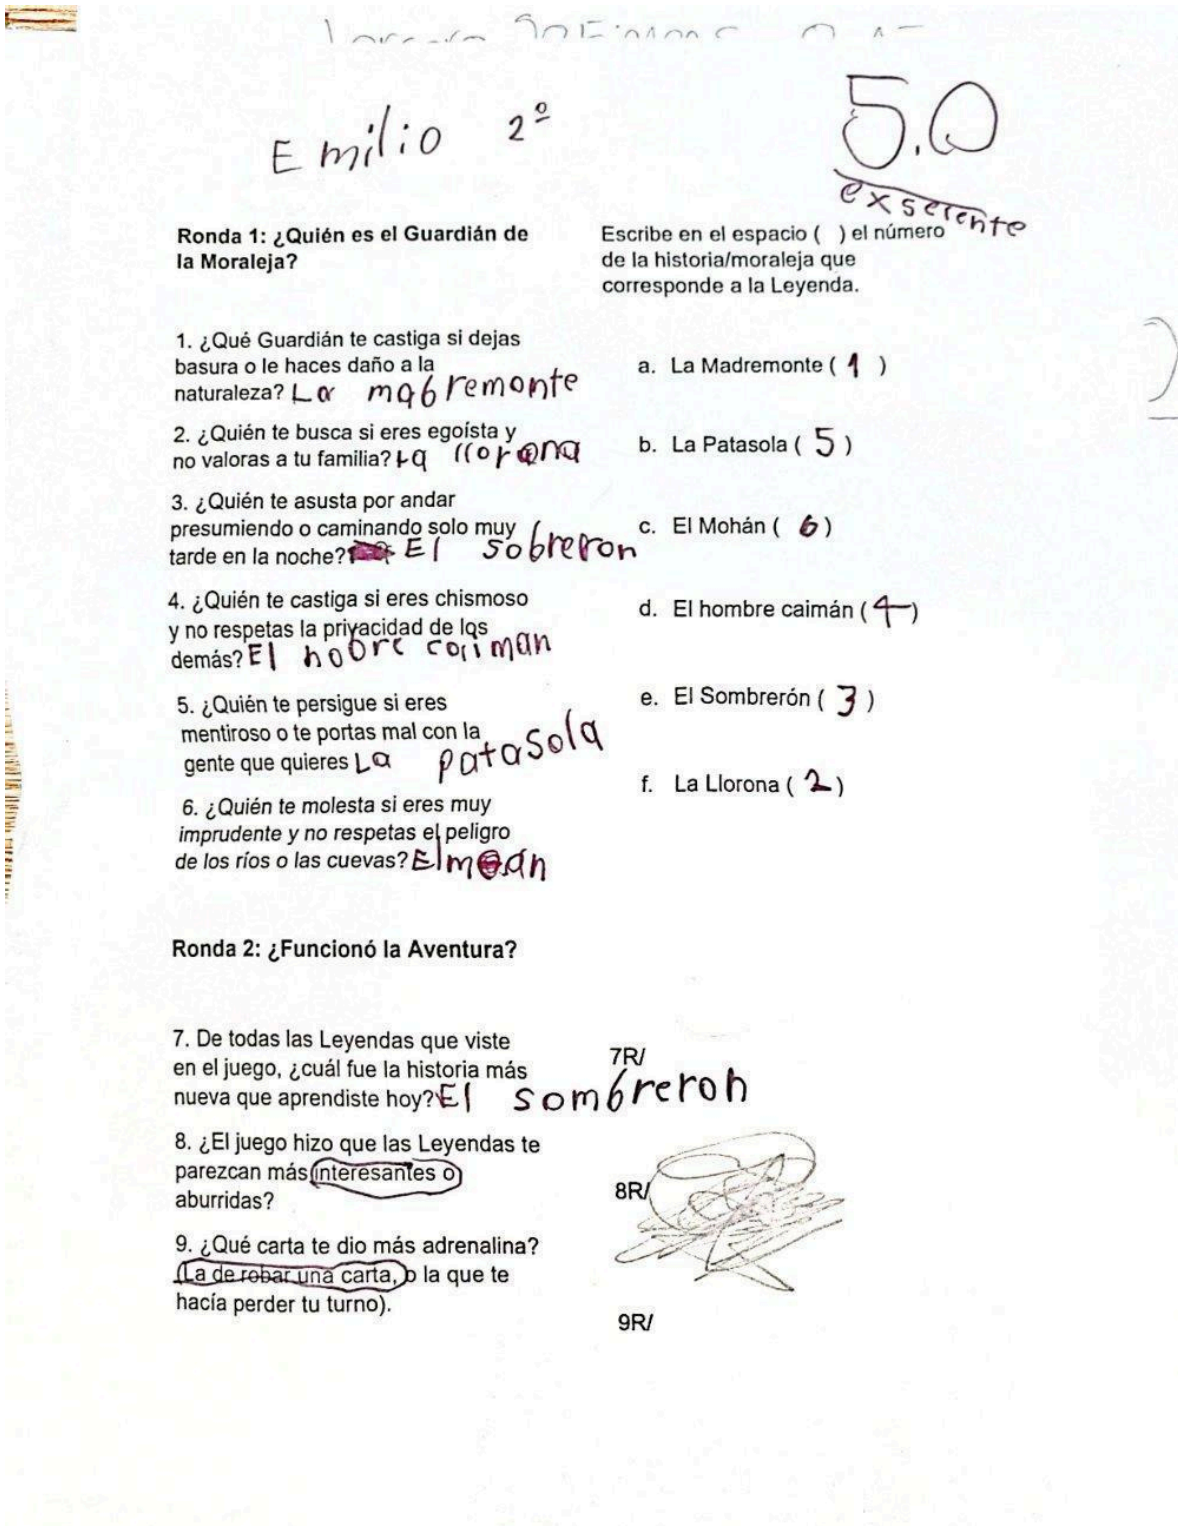 Emilio 2º
5.0
exselente
Ronda 1: ¿Quién es el Guardián de
la Moraleja?
Escribe en el espacio ( ) el número
de la historia/moraleja que
corresponde a la Leyenda.
1. ¿Qué Guardián te castiga si dejas
basura o le haces daño a la
naturaleza? La mabremonte
2. ¿Quién te busca si eres egoísta y
no valoras a tu familia? La llorona
3. ¿Quién te asusta por andar
presumiendo o caminando solo muy
tarde en la noche? El sobreron
4. ¿Quién te castiga si eres chismoso
y no respetas la privacidad de los
demás? El hobre caiman
5. ¿Quién te persigue si eres
mentiroso o te portas mal con la
gente que quieres La patasola
6. ¿Quién te molesta si eres muy
imprudente y no respetas el peligro
de los ríos o las cuevas? El moán
a. La Madremonte ( 1 )
b. La Patasola ( 5 )
c. El Mohán ( 6 )
d. El hombre caimán ( 4 )
e. El Sombrerón ( 3 )
f. La Llorona ( 2 )
Ronda 2: ¿Funcionó la Aventura?
7. De todas las Leyendas que viste
en el juego, ¿cuál fue la historia más
nueva que aprendiste hoy? El sombreron
7R/
8. ¿El juego hizo que las Leyendas te
parezcan más interesantes o
aburridas?
8R/
9. ¿Qué carta te dio más adrenalina?
(La de robar una carta, o la que te
hacía perder tu turno).
9R/